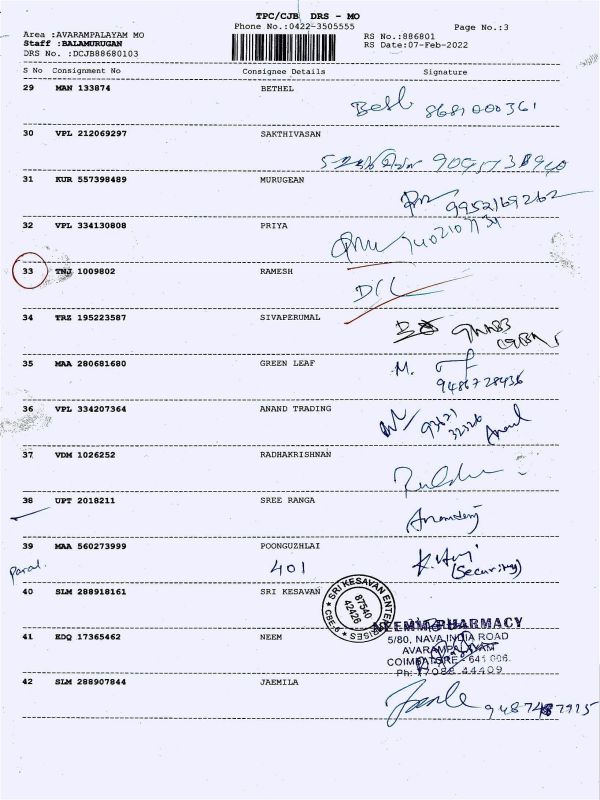 TPC/CJB DRS - MO
Phone No.:0422-3505555
Page No.:3
Area :AVARAMPALAYAM MO
Staff :BALAMURUGAN
DRS No. :DCJB88680103
RS No.:886801
RS Date:07-Feb-2022
S No Consignment No Consignee Details Signature
29 MAN 133874 BETHEL
8681000361
30 VPL 212069297 SAKTHIVASAN
31 KUR 557398489 MURUGEAN
9952169262
32 VPL 334130808 PRIYA
33 TNJ 1009802 RAMESH
34 TRZ 195223587 SIVAPERUMAL
35 MAA 280681680 GREEN LEAF
M.
9486728436
36 VPL 334207364 ANAND TRADING
93621
32326
Anand
37 VDM 1026252 RADHAKRISHNAN
38 UPT 2018211 SREE RANGA
39 MAA 560273999 POONGUZHLAI
401
(Security)
40 SLM 288918161 SRI KESAVAN
SRI KESAVAN ENTERPRISES
87540
42426
CBE-6
41 KDQ 17365462 NEEM
NEEMM PHARMACY
5/80, NAVA INDIA ROAD
AVARAMPALAYAM
COIMBATORE - 641 006.
Ph: 77088 44409
42 SLM 288907844 JAEMILA